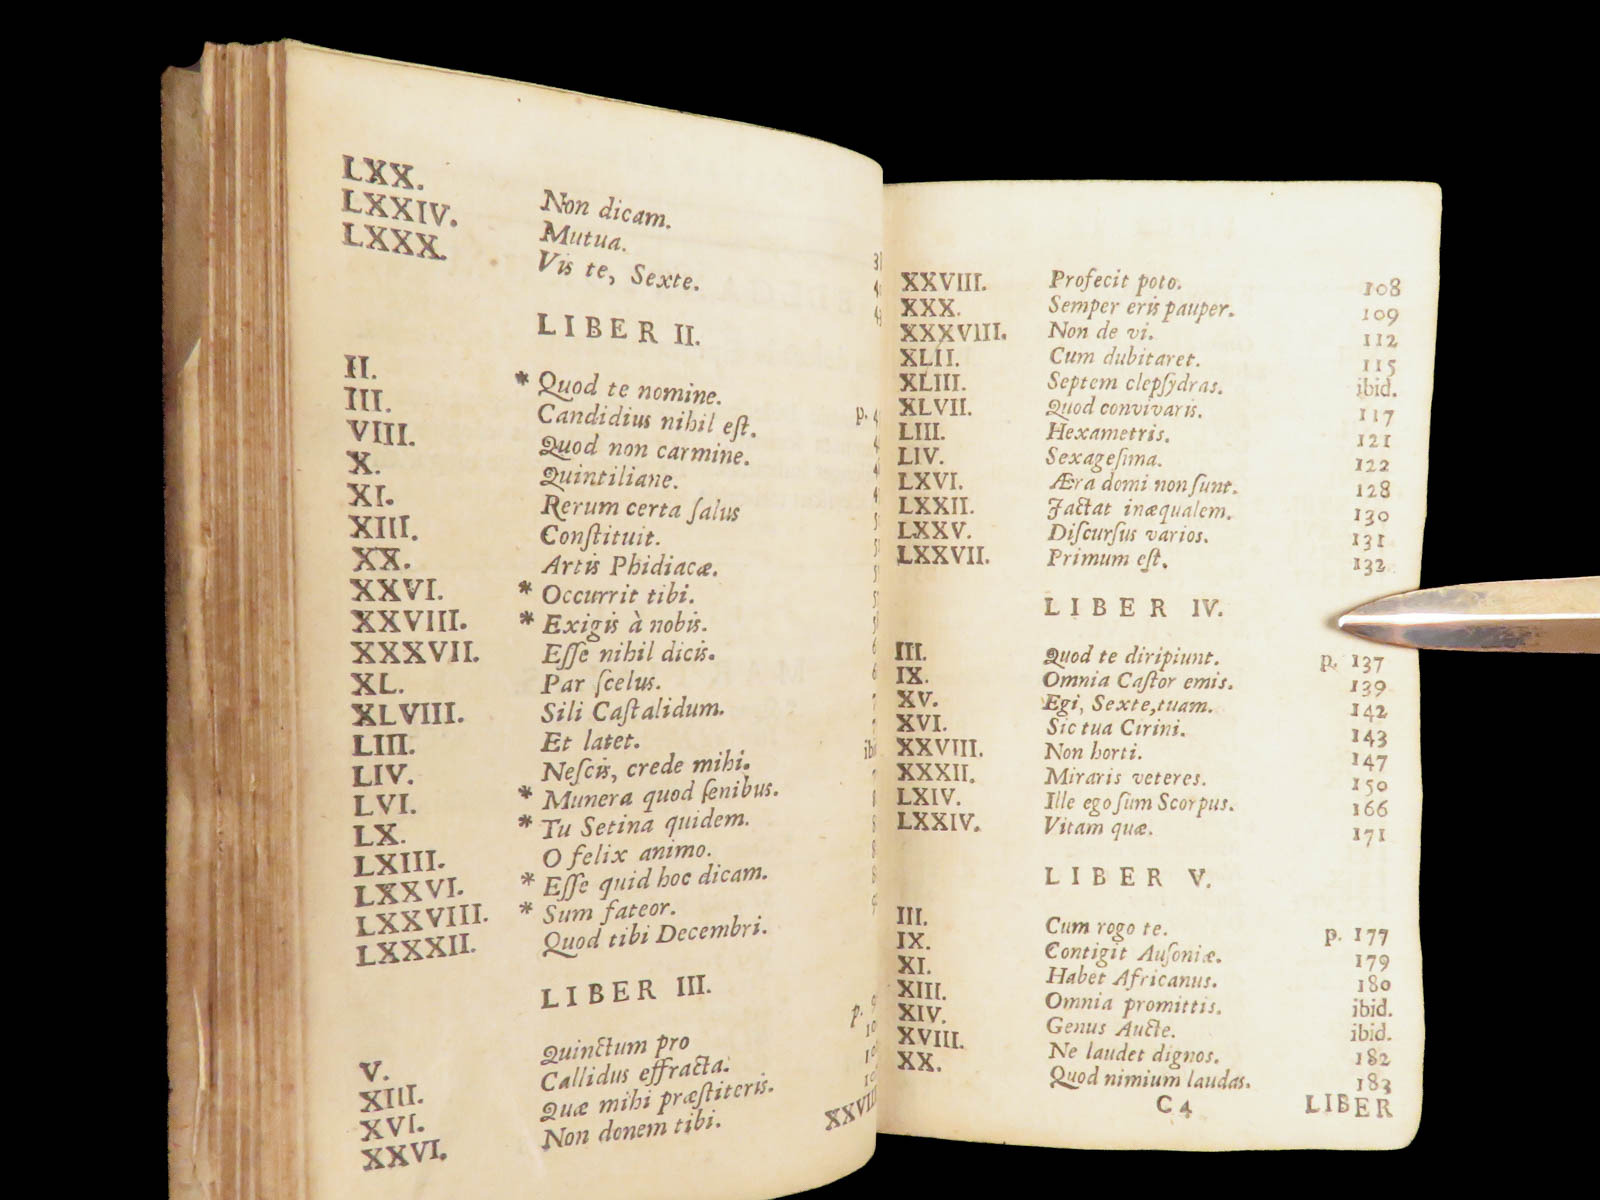 LXX. Non dicam.
LXXIV. Mutua.
LXXX. Vis te, Sexte.
LIBER II.
II. * Quod te nomine. p.
III. Candidius nihil eſt.
VIII. Quod non carmine.
X. Quintiliane.
XI. Rerum certa ſalus
XIII. Conſtituit.
XX. Artis Phidiacæ.
XXVI. * Occurrit tibi.
XXVIII. * Exigis à nobis.
XXXVII. Eſſe nihil dicis.
XL. Par ſcelus.
XLVIII. Sili Caſtalidum.
LIII. Et latet.
LIV. Neſcis, crede mihi.
LVI. * Munera quod ſenibus.
LX. * Tu Setina quidem.
LXIII. O felix animo.
LXXVI. * Eſſe quid hoc dicam.
LXXVIII. * Sum fateor.
LXXXII. Quod tibi Decembri.
LIBER III.
V. Quinctum pro p.
XIII. Callidus effracta.
XVI. Quæ mihi præſtiteris.
XXVI. Non donem tibi.
XXVIII
XXVIII. Profecit poto. 108
XXX. Semper eris pauper. 109
XXXVIII. Non de vi. 112
XLII. Cum dubitaret. 115
XLIII. Septem clepſydras. ibid.
XLVII. Quod convivaris. 117
LIII. Hexametris. 121
LIV. Sexageſima. 122
LXVI. Æra domi non ſunt. 128
LXXII. Jactat inæqualem. 130
LXXV. Diſcurſus varios. 131
LXXVII. Primum eſt. 132
LIBER IV.
III. Quod te diripiunt. p. 137
IX. Omnia Caſtor emis. 139
XV. Egi, Sexte, tuam. 142
XVI. Sic tua Cirini. 143
XXVIII. Non horti. 147
XXXII. Miraris veteres. 150
LXIV. Ille ego ſum Scorpus. 166
LXXIV. Vitam quæ. 171
LIBER V.
III. Cum rogo te. p. 177
IX. Contigit Auſoniæ. 179
XI. Habet Africanus. 180
XIII. Omnia promittis. ibid.
XIV. Genus Aucte. ibid.
XVIII. Ne laudet dignos. 182
XX. Quod nimium laudas. 183
C 4 LIBER